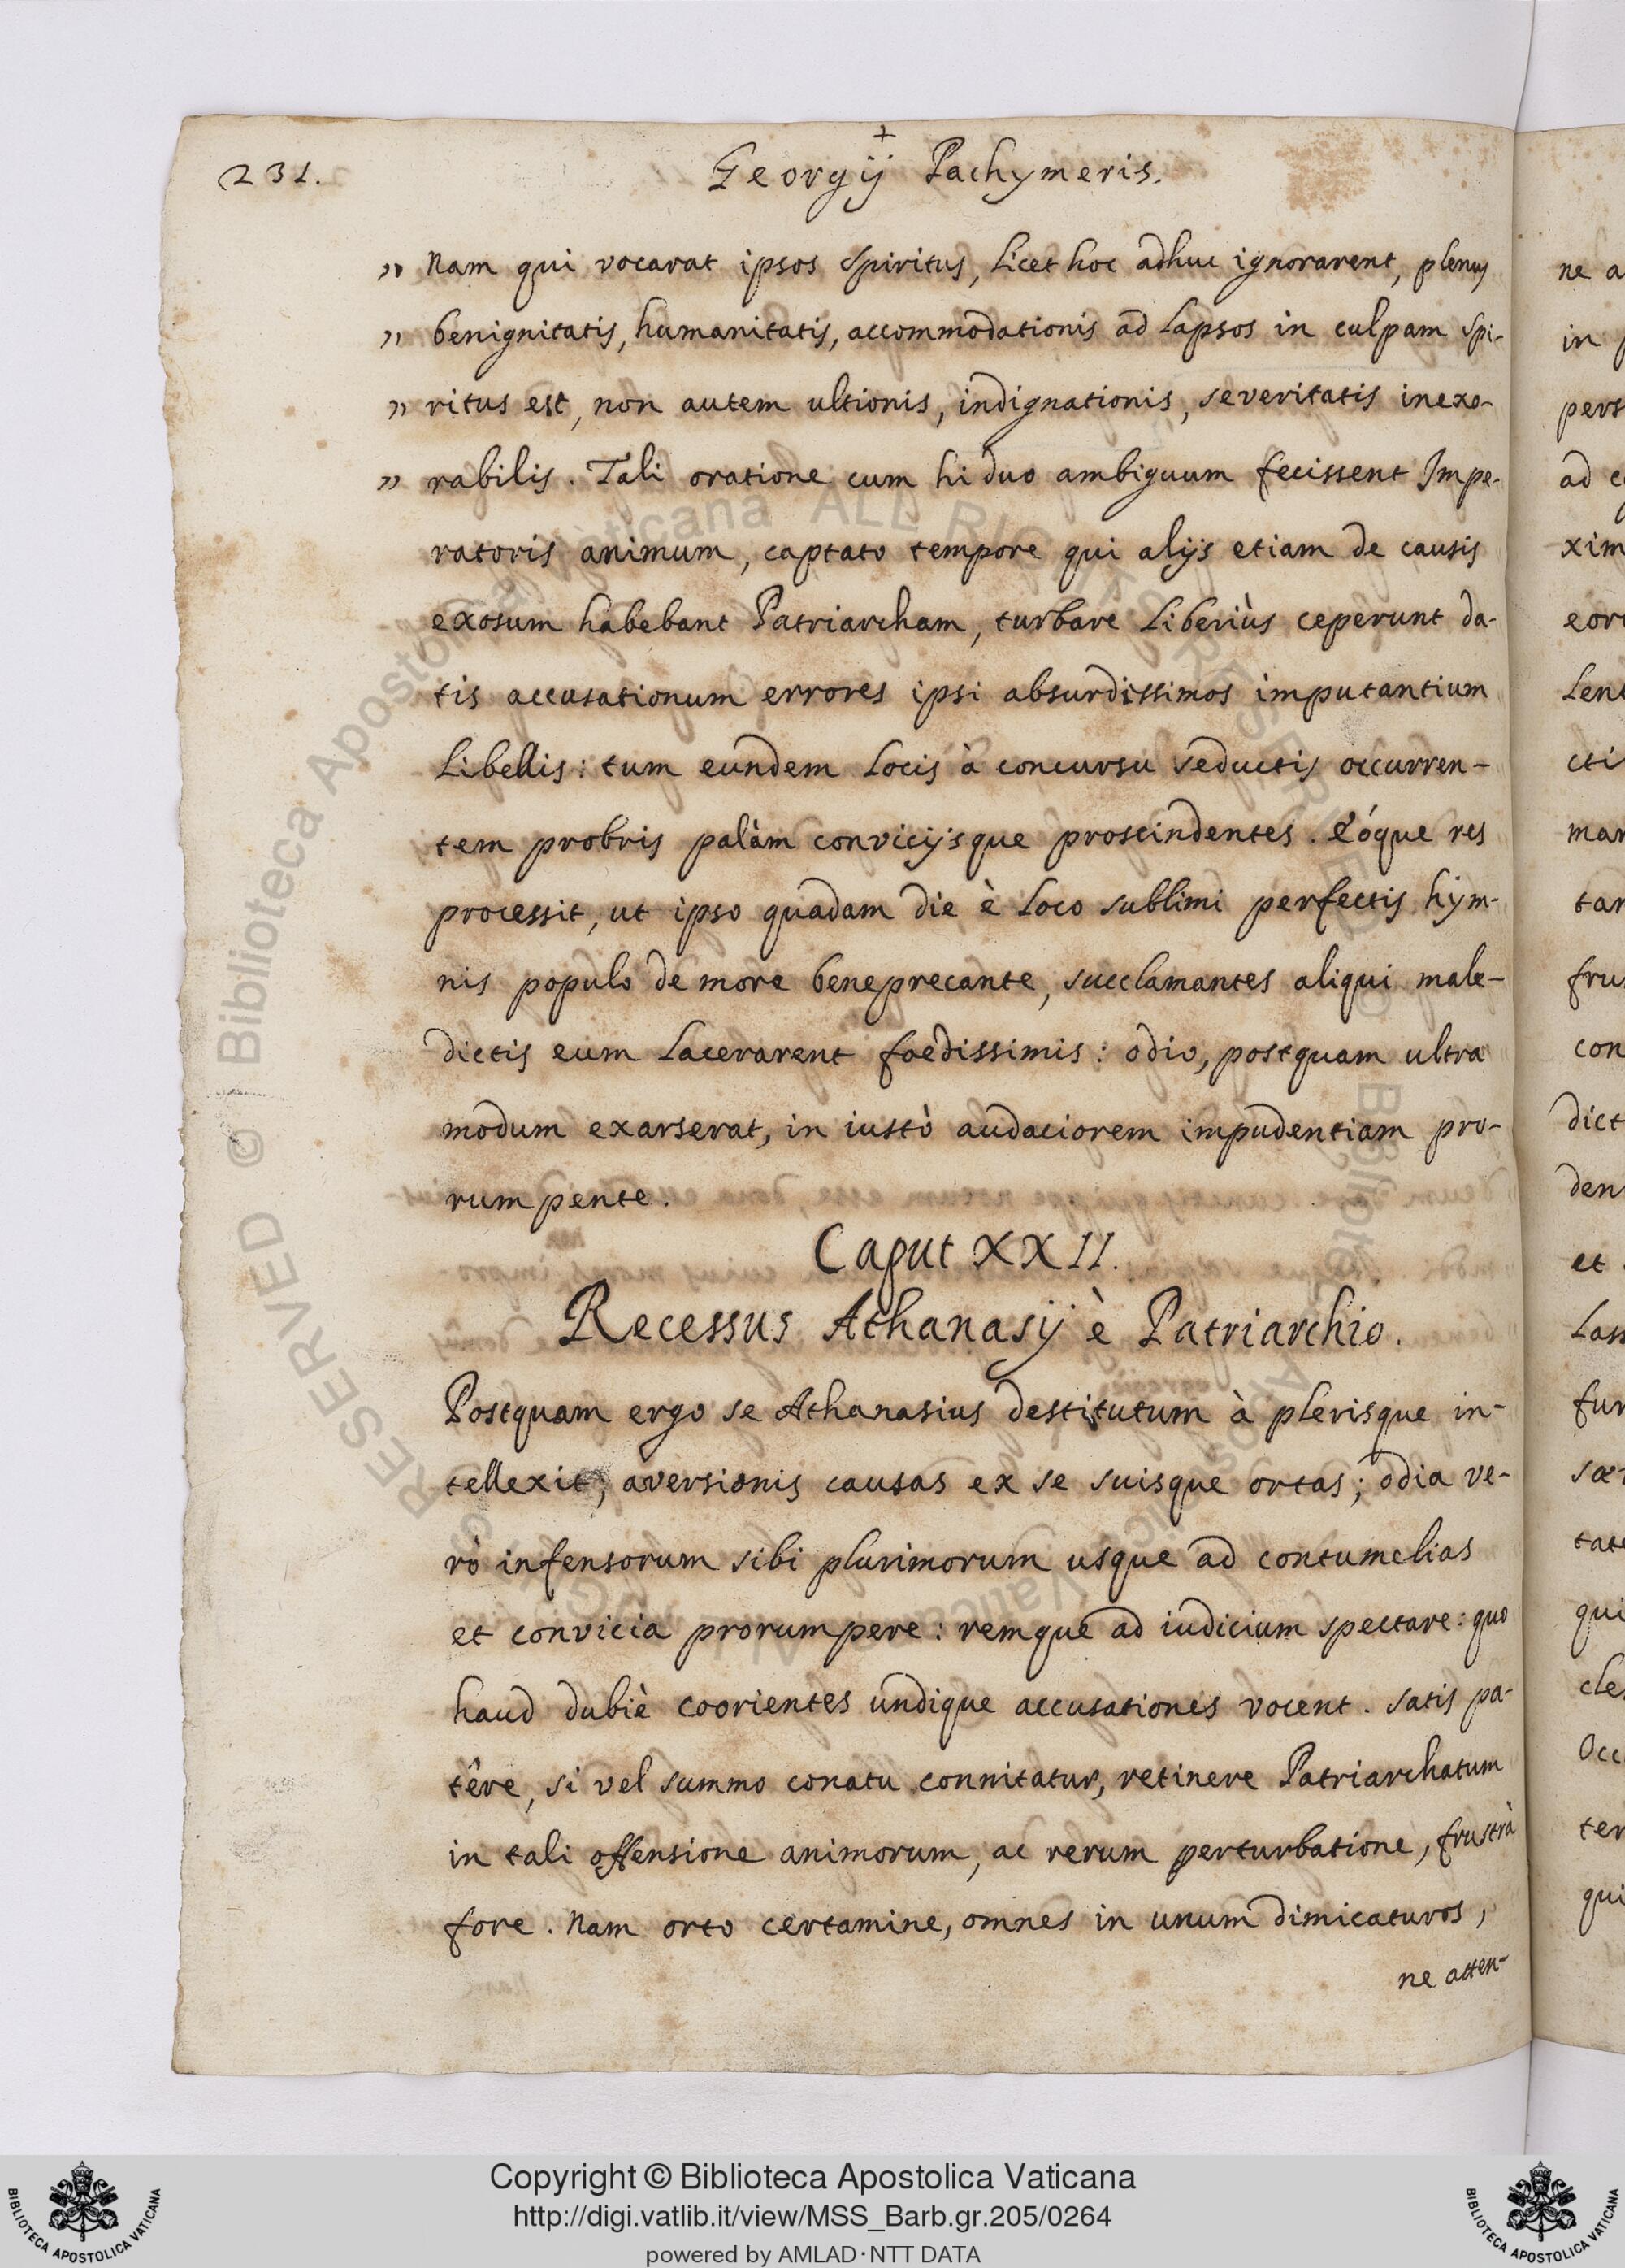 231.
+
Georgij Pachymeris.
„ Nam qui vocarat ipsos Spiritus, licet hoc adhuc ignorarent, plenus
„ benignitatis, humanitatis, accommodationis ad lapsos in culpam Spi-
„ ritus est, non autem ultionis, indignationis, severitatis inexo-
„ rabilis. Tali oratione cum hi duo ambiguum fecissent Impe-
ratoris animum, captato tempore qui alijs etiam de causis
exosum habebant Patriarcham, turbare liberiùs ceperunt da-
tis accusationum errores ipsi absurdissimos imputantium
libellis: tum eundem locis à concursu seductis occurren-
tem probris palàm convicijsque proscindentes. Eóque res
processit, ut ipso quadam die è loco sublimi perfectis hym-
nis populo de more beneprecante, succlamantes aliqui male-
dictis eum lacerarent foedissimis: odio, postquam ultra
modum exarserat, in iustò audaciorem impudentiam pro-
rumpente.
Caput XXII.
Recessus Athanasij è Patriarchio.
Postquam ergo se Athanasius destitutum à plerisque in-
tellexit; aversionis causas ex se suisque ortas; odia ve-
rò infensorum sibi plurimorum usque ad contumelias
et convicia prorumpere: remque ad iudicium spectare: quo
haud dubiè coorientes undique accusationes vocent. Satis pa-
têre, si vel summo conatu connitatur, retinere Patriarchatum
in tali offensione animorum, ac rerum perturbatione, frustrà
fore. Nam orto certamine, omnes in unum dimicaturos,
ne atten-
ne a
in
pers
ad
xim
eor
len
cti
mar
tar
fru
con
dict
den
et
las
fur
sær
tat
qui
cle
Occ
ter
qui
Copyright © Biblioteca Apostolica Vaticana
http://digi.vatlib.it/view/MSS_Barb.gr.205/0264
powered by AMLAD·NTT DATA
BIBLIOTECA APOSTOLICA VATICANA
BIBLIOTECA APOSTOLICA VATICANA